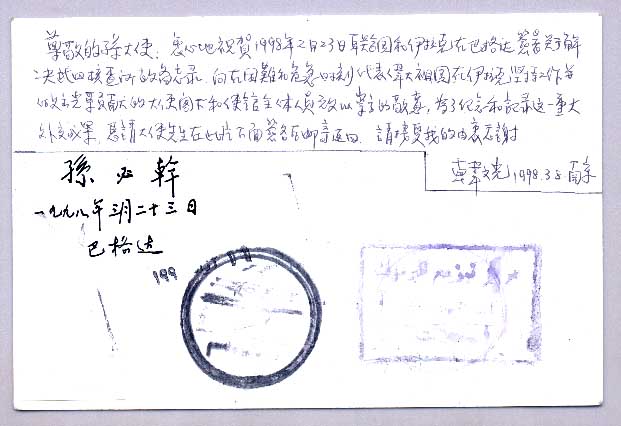 尊敬的孫大使: 衷心地祝賀1998年2月23日联合国和伊拉克在巴格达簽署关于解
决武四核查问的备忘录. 向在困難和危急时刻代表偉大祖国在伊拉克坚持工作并
做出貢献的大使阁下和使館全体人员致以崇高的敬意, 為了纪念和記录这一重大
外交成果, 恳請大使先生在此片下面簽名后邮寄返回. 請接受我的由衷感謝
文光 1998.3.8
孫必幹
一九九八年三月二十三日
巴格达
199